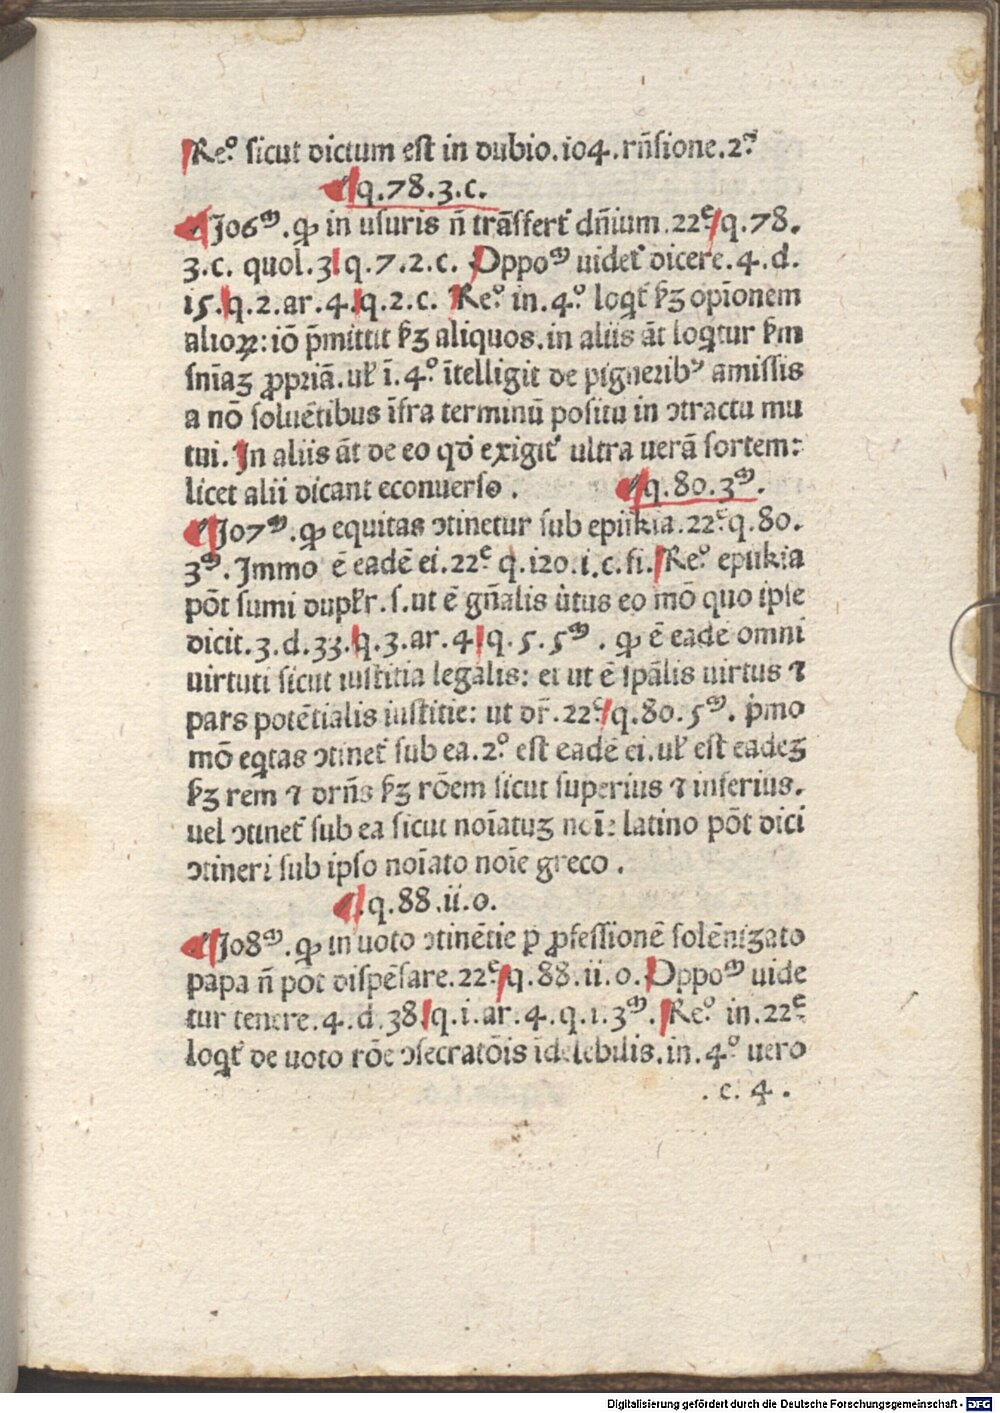 Re.º sicut dictum est in dubio.104.rñsione.2.ᵃ
q.78.3.c.
J06ᵐ.ꝙ in usuris ñ trãsfert᷑ dñium.22ᵉ.q.78.
3.c. quol.3.q.7.2.c. Oppoᵐ uidet᷑ dicere.4.d.
15.q.2.ar.4.q.2.c. Re.º in.4.º loqt᷑ ẜꝫ opĩonem
alioꝝ: iõ p̃mittit ẜꝫ aliquos.in aliis ãt loqtur ẜm
sñiaꝫ ꝓpriã.uł ĩ.4.º ĩtelligit de pigneribꝰ amissis
a nõ soluẽtibus ĩfra terminũ positũ in ↄtractu mu
tui. In aliis ãt de eo qđ exigit᷑ ultra uerã sortem:
licet alii dicant econuerso .
q.80.3ᵐ.
J07ᵐ.ꝙ equitas ↄtinetur sub epiikia.22ᵉ.q.80.
3ᵐ. Immo ẽ eadẽ ei.22ᵉ q.120.1.c.fi. Re.º epiikia
põt sumi duplr̃.s.ut ẽ gñalis ũtus eo mõ quo ipse
dicit.3.d.33.q.3.ar.4.q.5.5ᵐ . ꝙ ẽ eadẽ omni
uirtuti sicut iustitia legalis: et ut ẽ spãlis uirtus ⁊
pars potẽtialis iustitie: ut dr̃.22ᵉ.q.80.5ᵐ. p̃mo
mõ eqtas ↄtinet᷑ sub ea.2.º est eadẽ ei.uł est eadeꝫ
ẜꝫ rem ⁊ drñs ẜꝫ rõem sicut superius ⁊ inferius.
uel ↄtinet᷑ sub ea sicut noĩatuꝫ noĩe latino põt dici
ↄtineri sub ipso noĩato noĩe greco .
.q.88.ii.o.
J08ᵐ.ꝙ in uoto ↄtinẽtie p̃ ꝓfessionẽ solẽnizato
papa ñ põt dispẽsare.22ᵉ.q.88.ii.o. Oppoᵐ uide
tur tenere.4.d.38.q.i.ar.4.q.1.3ᵐ. Re.º in.22ᵉ.
loqt᷑ de uoto rõe ↄsecratõis ĩdelebilis.in.4.º uero
.c.4.
Digitalisierung gefördert durch die Deutsche Forschungsgemeinschaft - DFG